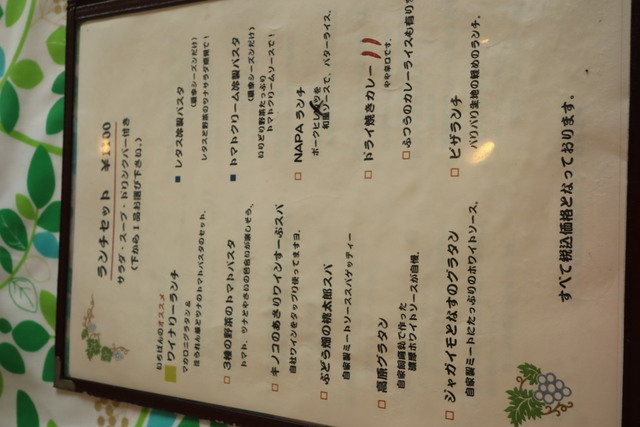 ランチセット
サラダ・スープ・ドリンクバー付き
(下から1品お選び下さい。)
いちばんのオススメ
ワイナリーランチ
マカロニグラタン&
ほうれん草とツナのトマトパスタのセット。
3種の野菜のトマトパスタ
トマト、ツナとやさいの色合いが楽しそう。
キノコのあさりワインすーぷスパ
自社ワインをタップリ使ってますヨ。
ぶどう畑の桃太郎スパ
自家製ミートソーススパゲッティー
高原グラタン
自家製
で作った
濃厚ホワイトソースが自慢。
ジャガイモとなすのグラタン
自家製ミートにたっぷりのホワイトソース。
レタス冷製パスタ
(夏季シーズンだけ)
レタスと野菜のツナサラダ感覚で!
トマトクリーム冷製パスタ
(夏季シーズンだけ)
いろどり野菜たっぷり
トマトクリームソースで!
NAPA ランチ
ポークヒレ
和風ソースで、バターライス。
ドライ焼きカレー
やや辛口です。
ふつうのカレーライスも有り
ピザランチ
パリパリ生地の軽めのランチ。
すべて税込価格となっております。